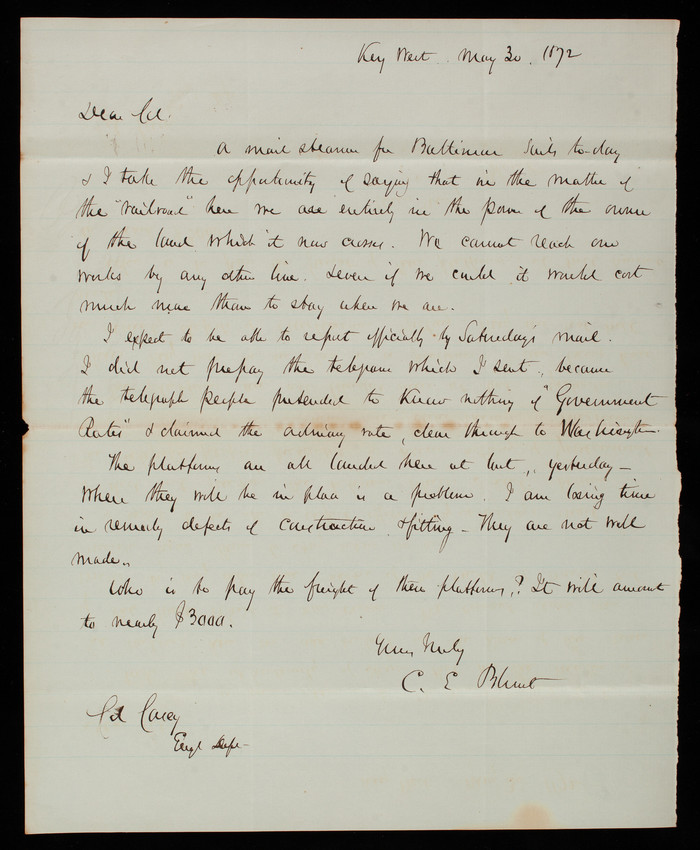 Key West. May 30. 1872
Dear Col.
A mail steamer for Baltimore sails to-day
& I take the opportunity of saying that in the matter of
the "railroad" here we are entirely in the power of the owner
of the land which it now crosses. We cannot reach our
works by any other line. & even if we could it would cost
much more than to stay where we are.
I expect to be able to report officially by Saturday's mail.
I did not prepay the telegram which I sent, because
the telegraph people pretended to know nothing of "Government
Rates" & claimed the ordinary rate, clear through to Washington.
The platforms are all landed here at last, yesterday —
When they will be in place is a problem. I am losing time
in remedy defects of construction & fitting — They are not well
made..
Who is to pay the freight of these platforms,? It will amount
to nearly $3000.
Yours truly
C. E. Blunt
Col Casey
Engr Dept